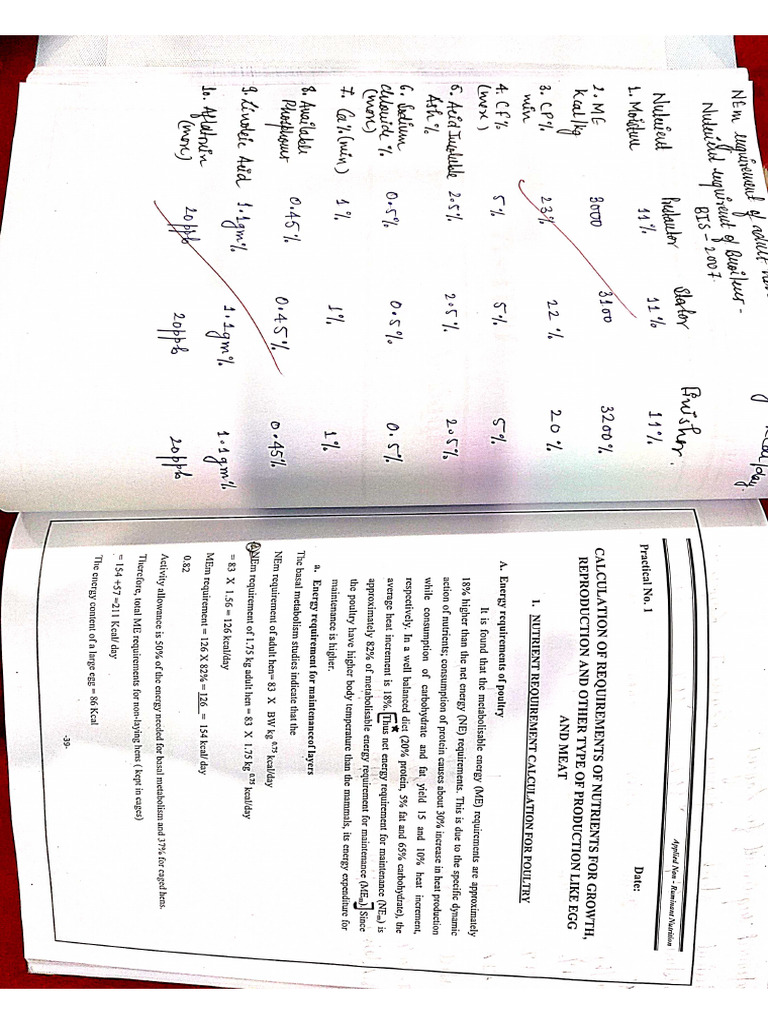 NEm requirement of adult hen
kcal/day
Nutrient requirement of Broiler -
BIS - 2007.
Nutrient Prestarter Stator Finisher.
1. Moisture 11% 11% 11%
2. ME 3000 3100 3200%
kcal/kg
3. CP% 23% 22% 20%
min
4. CF% 5% 5% 5%
(max)
5. Acid Insoluble 2.5% 2.5% 2.5%
Ash %
6. Sodium 0.5% 0.5% 0.5%
chloride %
(max)
7. Ca% (min) 1% 1% 1%
8. Available 0.45% 0.45% 0.45%
Phosphorus
9. Linoleic Acid 1.1gm% 1.1gm% 1.1gm%
10. Aflatoxin 20ppb 20ppb 20ppb
(max)
Applied Non - Ruminant Nutrition
Practical No. 1 Date:
CALCULATION OF REQUIREMENTS OF NUTRIENTS FOR GROWTH,
REPRODUCTION AND OTHER TYPE OF PRODUCTION LIKE EGG
AND MEAT
1. NUTRIENT REQUIREMENT CALCULATION FOR POULTRY
A. Energy requirements of poultry
It is found that the metabolisable energy (ME) requirements are approximately
18% higher than the net energy (NE) requirements. This is due to the specific dynamic
action of nutrients; consumption of protein causes about 30% increase in heat production
while consumption of carbohydrate and fat yield 15 and 10% heat increment,
respectively. In a well balanced diet (20% protein, 5% fat and 65% carbohydrate), the
average heat increment is 18%. Thus net energy requirement for maintenance (NEm) is
approximately 82% of metabolisable energy requirement for maintenance (MEm). Since
the poultry have higher body temperature than the mammals, its energy expenditure for
maintenance is higher.
a. Energy requirement for maintenanceof layers
The basal metabolism studies indicate that the
NEm requirement of adult hen= 83 X BW kg 0.75 kcal/day
NEm requirement of 1.75 kg adult hen = 83 X 1.75 kg 0.75 kcal/day
= 83 X 1.56 = 126 kcal/day
MEm requirement = 126 X 82% = 126 = 154 kcal/ day
0.82
Activity allowance is 50% of the energy needed for basal metabolism and 37% for caged hens.
Therefore, total ME requirements for non-laying hens ( kept in cages)
= 154 +57 =211 Kcal/ day
The energy content of a large egg = 86 Kcal
-39-